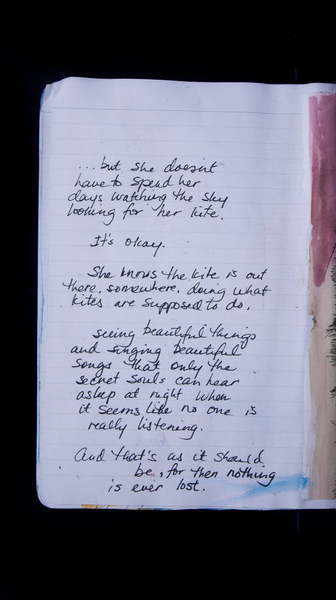 ...but she doesn't
have to spend her
days watching the sky
looking for her kite.
It's okay.
She knows the kite is out
there, somewhere, doing what
kites are supposed to do.
seeing beautiful things
and singing beautiful
songs that only the
secret souls can hear
asleep at night when
it seems like no one is
really listening.
And that's as it should
be, for then nothing
is ever lost.